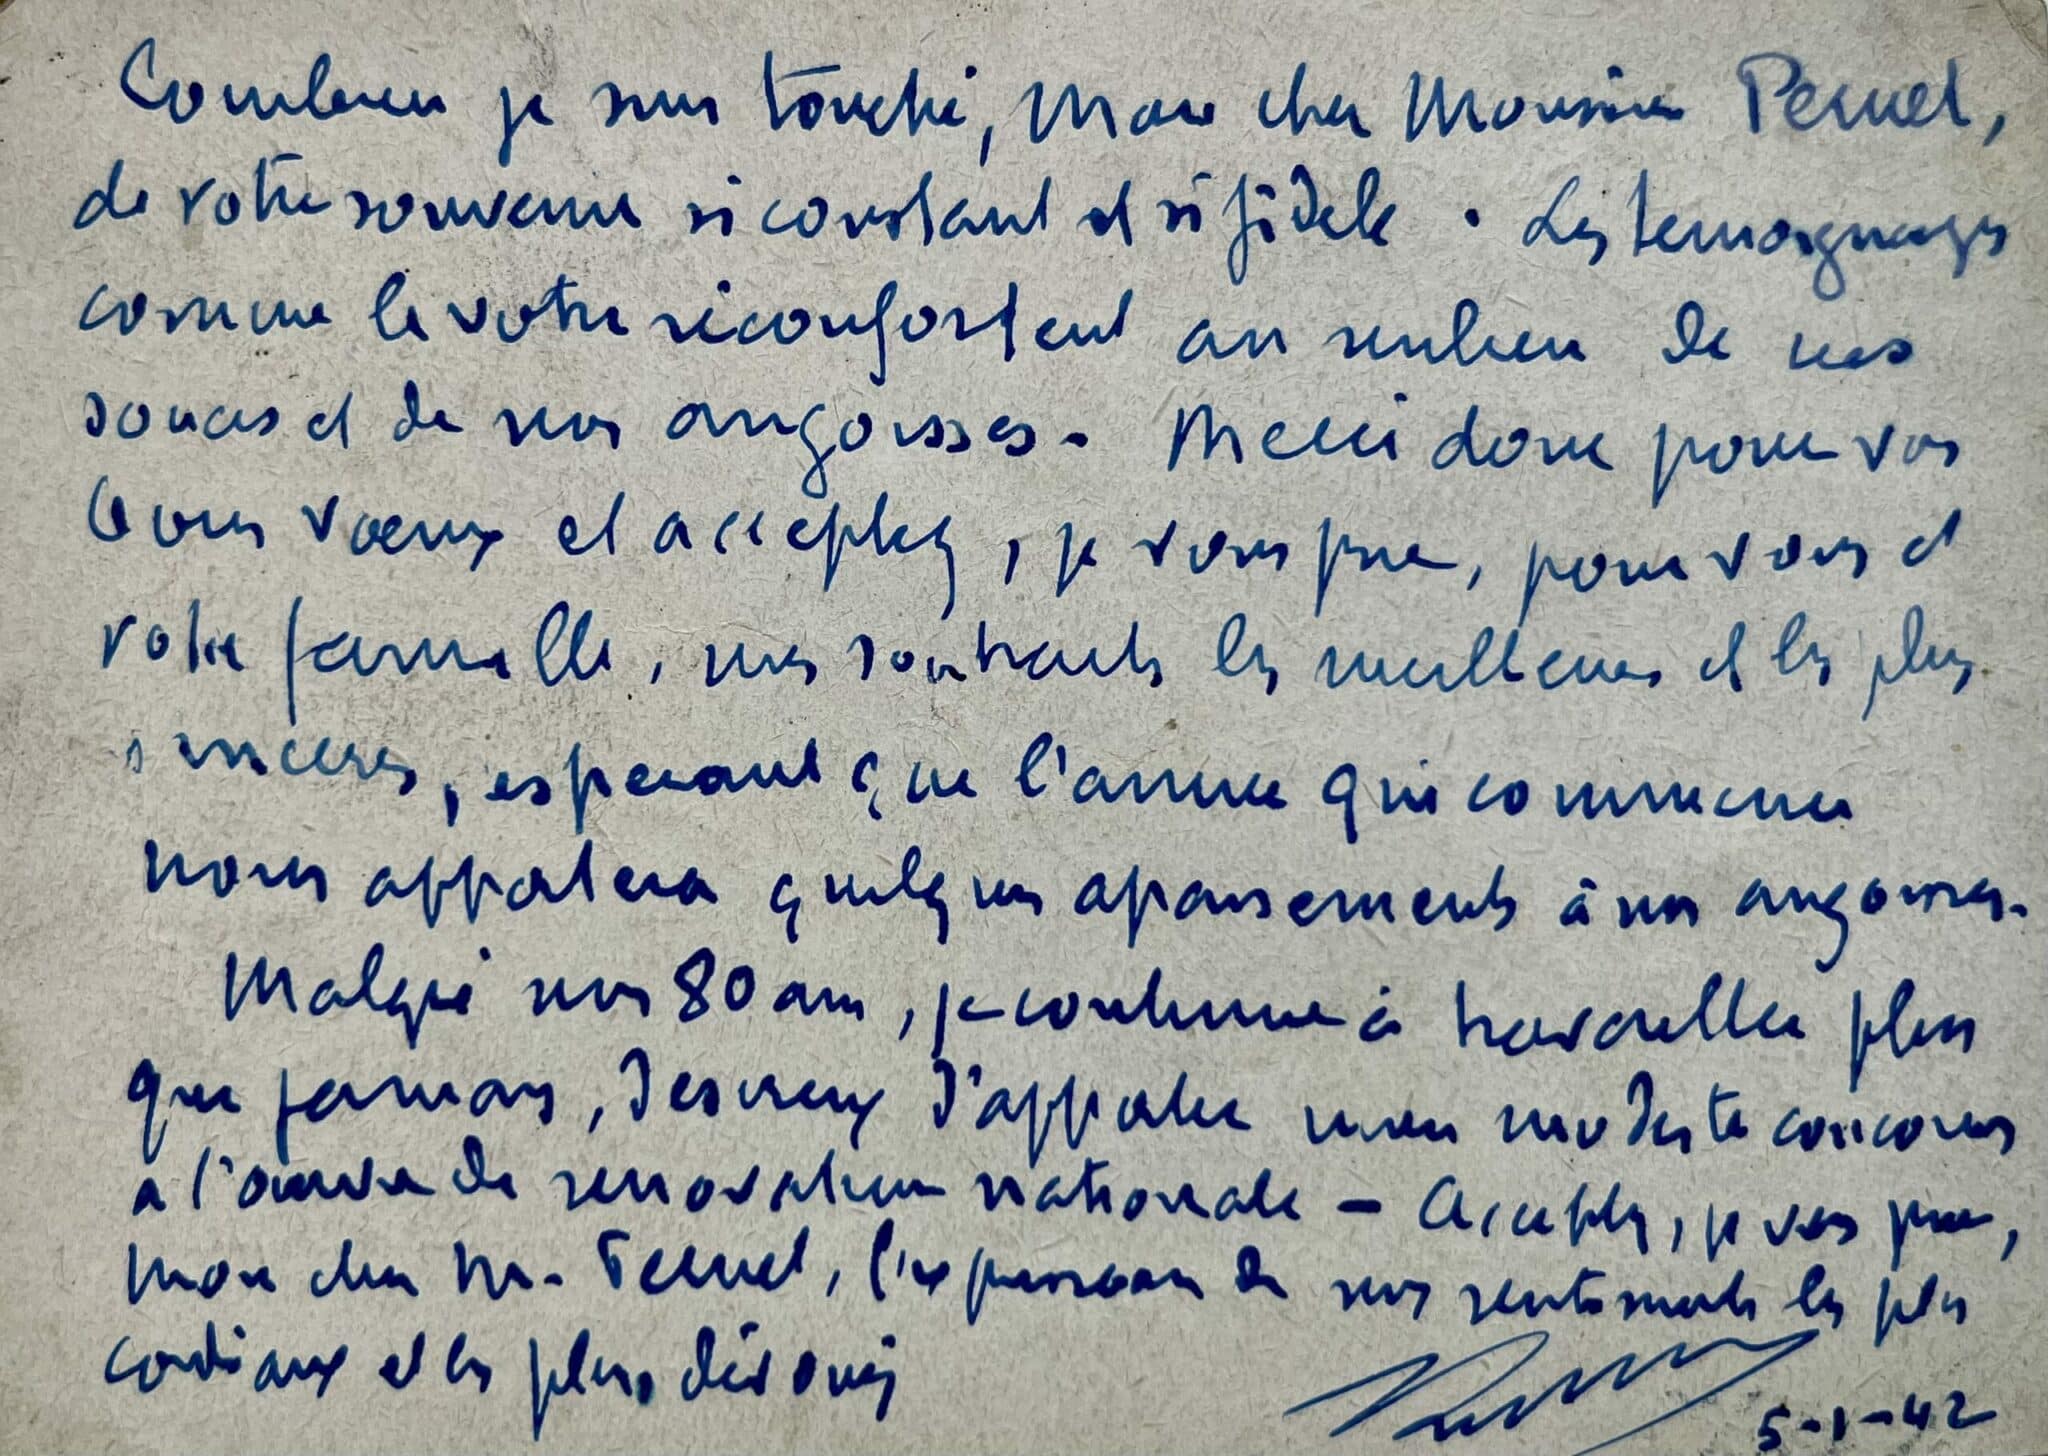 Combien je suis touché, Mon cher Monsieur Pernet,
de votre souvenir si constant et si fidèle. Les temoignages
comme le votre réconfortent au milieu de nos
soucis et de nos angoisses. Merci donc pour vos
bons vœux et acceptez, je vous prie, pour vous et
votre famille, mes souhaits les meilleurs et les plus
sinceres, esperant que l'annee qui commence
nous apportera quelques apaisements à nos angoisses.
Malgré mes 80 ans, je continue à travailler plus
que jamais, desireux d'apporter mon modeste concours
a l'œuvre de renovation nationale - Acceptez, je vous prie,
mon cher M. Pernet, l'expression de mes sentiments les plus
cordiaux et les plus dévoués
5-1-42